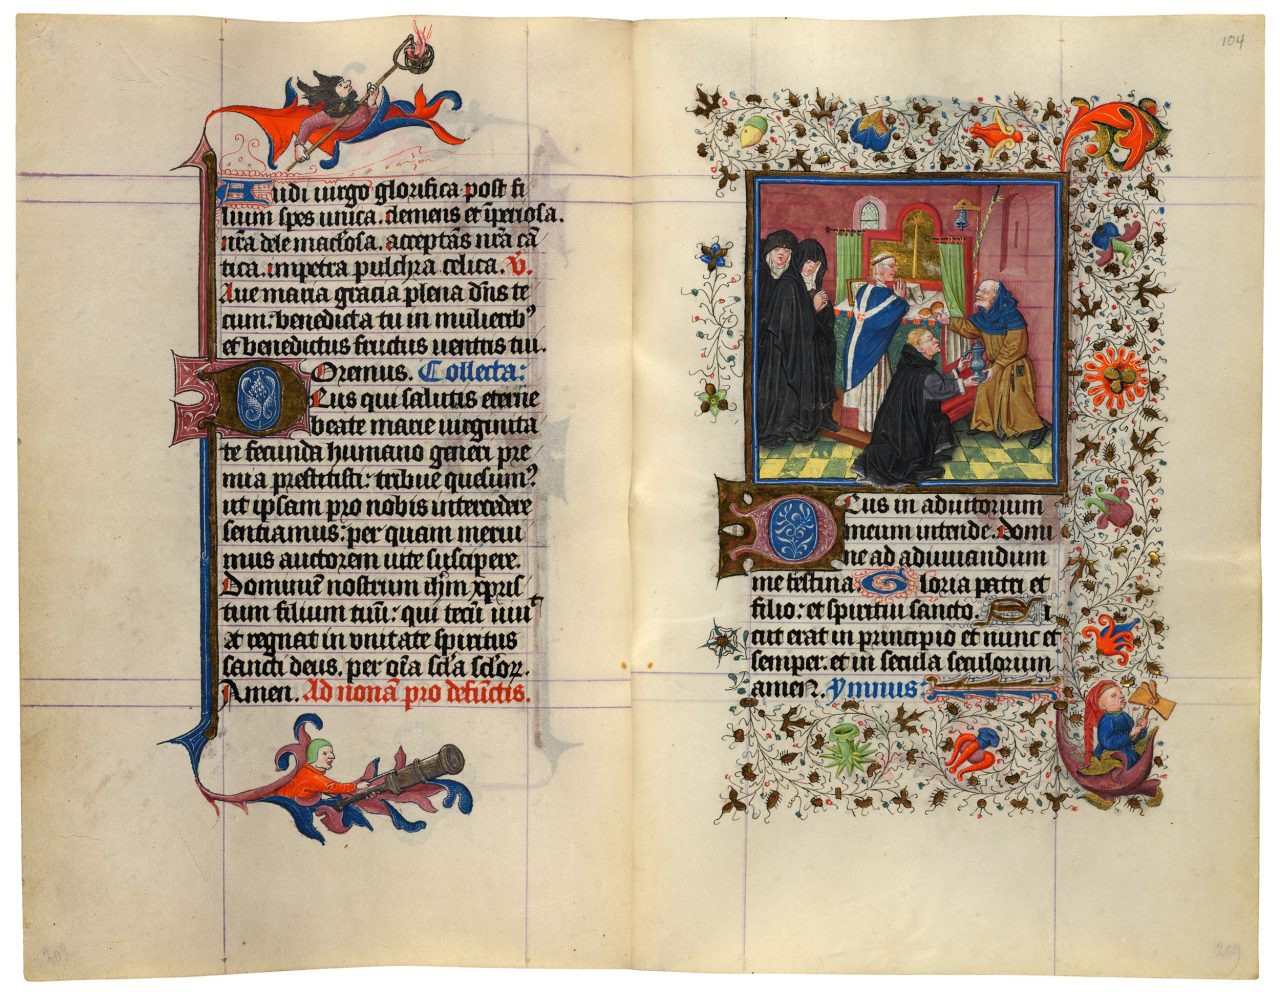 Audi uirgo glorifica post fi
lium spes unica. clemens et īperiosa.
nr̄a dele maculosa. acceptās nr̄a cā
tica. impetra pulchra celica. V̄.
Aue maria gracia plena dn̄s te
cum. benedicta tu in mulierib⁹
et benedictus fructus uentris tui.
Oremus. Collecta:
Deus qui salutis eterne
beate marie uirginita
te fecunda humano generi pre
mia prestitisti: tribue quesum⁹
ut ipsam pro nobis intercedere
sentiamus: per quam merui
mus auctorem uite suscipere.
Dominū nostrum ihm̄ xpris
tum filium tuū: qui tecū uiuit
et regnat in unitate spiritus
sancti deus. per oīa scl̄a scl̄oꝝ.
Amen. Ad nonā pro defūctis.
104
Deus in adiutorium
meum intende. Domi
ne ad adiuuandum
me festina. Gloria patri et
filio: et spiritui sancto. Si
cut erat in principio et nunc et
semper. et in secula seculorum
amen. Ymnus:
209